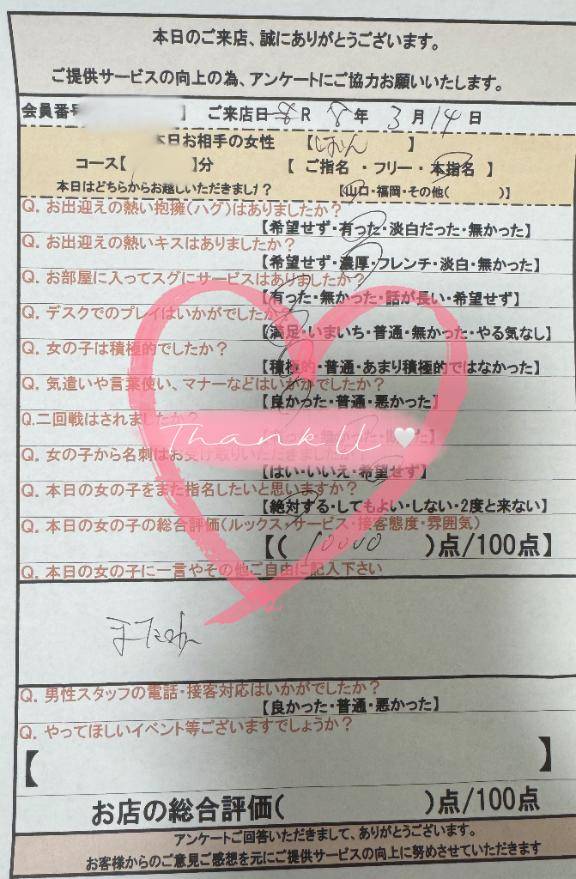 本日のご来店、誠にありがとうございます。
ご提供サービスの向上の為、アンケートにご協力お願いいたします。
会員番号 】 ご来店日 R 8年 3月14日
本日お相手の女性 【 】
コース【 】分 【 ご指名 ・ フリー ・ 本指名 】
本日はどちらからお越しいただきました? 【山口・福岡・その他( )】
Q. お出迎えの熱い抱擁(ハグ)はありましたか?
【希望せず・有った・淡白だった・無かった】
Q. お出迎えの熱いキスはありましたか?
【希望せず・濃厚・フレンチ・淡白・無かった】
Q. お部屋に入ってスグにサービスはありましたか?
【有った・無かった・話が長い・希望せず】
Q. デスクでのプレイはいかがでしたか?
【満足・いまいち・普通・無かった・やる気なし】
Q. 女の子は積極的でしたか?
【積極的・普通・あまり積極的ではなかった】
Q. 気遣いや言葉使い、マナーなどはいかがでしたか?
【良かった・普通・悪かった】
Q.二回戦はされましたか?
Thank U
Q. 女の子から名刺はお受け取りいただきましたか?
【はい・いいえ・希望せず】
Q. 本日の女の子をまた指名したいと思いますか?
【絶対する・してもよい・しない・2度と来ない】
Q. 本日の女の子の総合評価(ルックス・サービス・接客態度・雰囲気)
【( 10000 )点/100点】
Q. 本日の女の子に一言やその他ご自由に記入下さい
またね〜
Q. 男性スタッフの電話・接客対応はいかがでしたか?
【良かった・普通・悪かった】
Q. やってほしいイベント等ございますでしょうか?
【 】
お店の総合評価( )点/100点
アンケートご回答いただきまして、ありがとうございます。
お客様からのご意見ご感想を元にご提供サービスの向上に努めさせていただきます